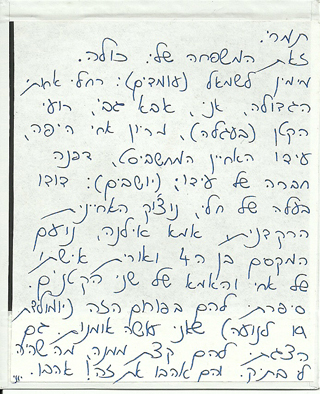 תמרי.
זאת המשפחה שלי. כולה.
מימין לשמאל (עומדים): רחלי אחותי
הגדולה, אני, אבא גבי, רועי
הקטן (בעגלה), מרין אחי היפה,
עידו האחיין המחשביסט, דפנה
חברה של עידו; (יושבים): דודו
בעלה של חלי, נוצ'יק האחיינית
הרקדנית, אמא אילנה, נועם
המקסם בן ה4 ואורית אישתו
של אחי והאמא של שני הקטנים.
סיפרתי להם בפורום הזה (יומולדת
19 לנועה) שאני עושה אומנות. גם
הצגתי להם קצת ממנה, מה שהיה
לי בתיק. הם אהבו את זה! אהבו.